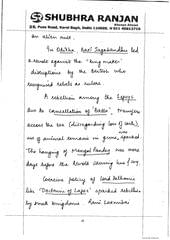 SHUBHRA RANJAN
an alien rule.
In Odisha Ravi Jagabandhu led
a revolt against the "king maker"
disruptions by the British who
recognised rebels as rulers.
A rebellion among the
due to cancellation of "Batta",
access the sea (disregarding loss of caste),
use of animal remains in guns, sparked
The hanging of Mangal Pandey was mere
days before the revolt
Coercive policy of Lord Dalhousie
like "Doctrine of Lapse" sparked rebellies
by small kingdoms. Rani Laxmibai